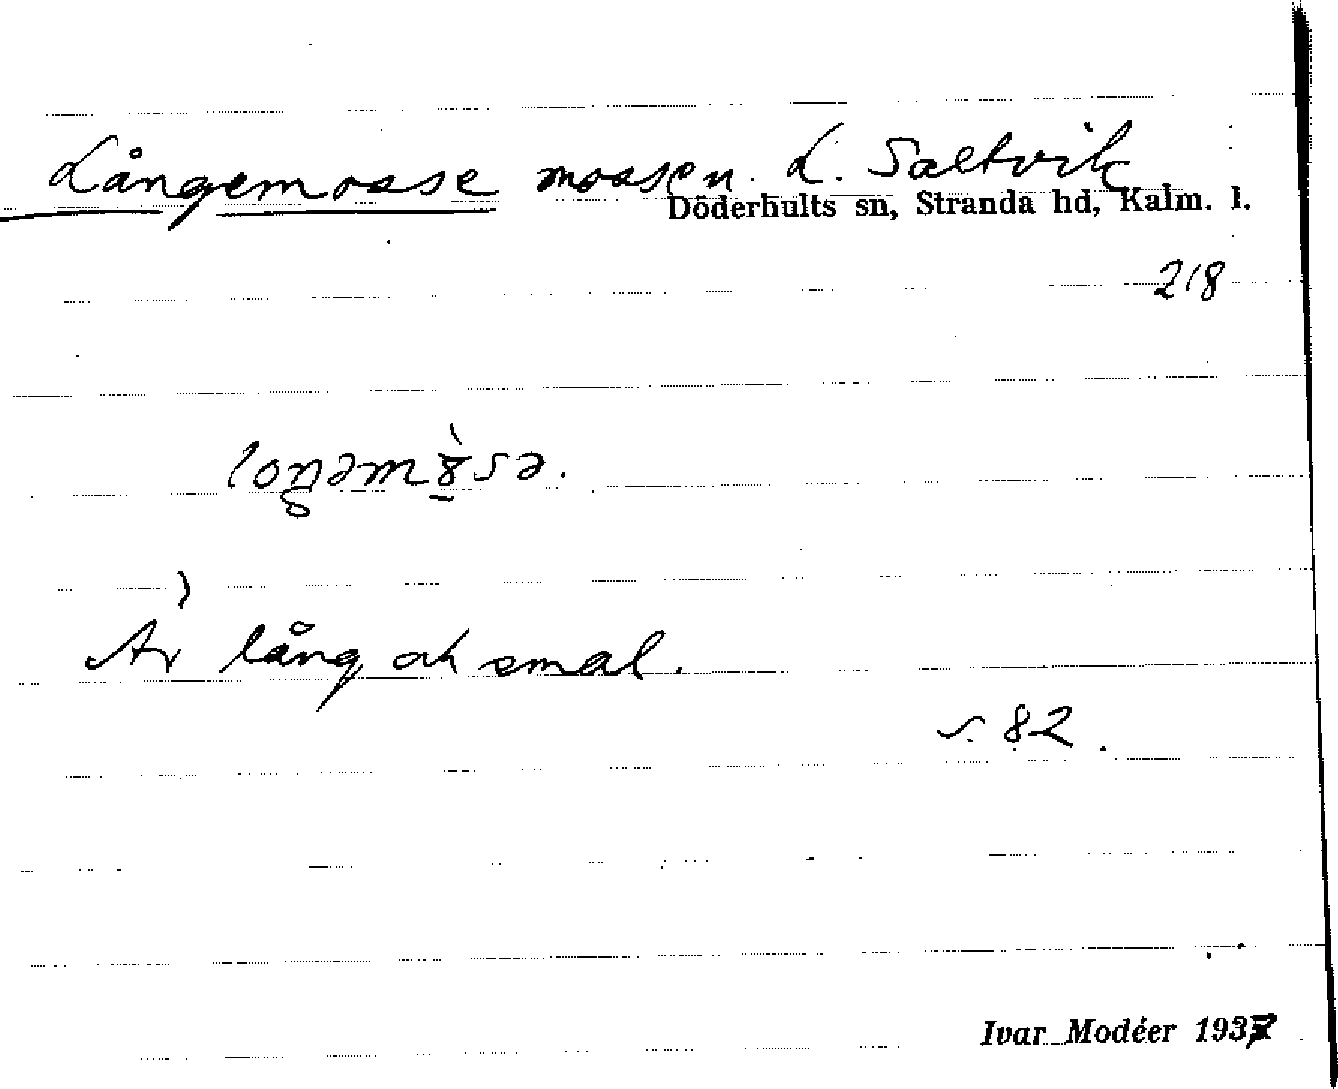 Långemosse mossen. L. Saltvik
Döderhults sn, Stranda hd, Kalm. l.
218
Är lång och smal.
s. 82.
Ivar Modéer 1937